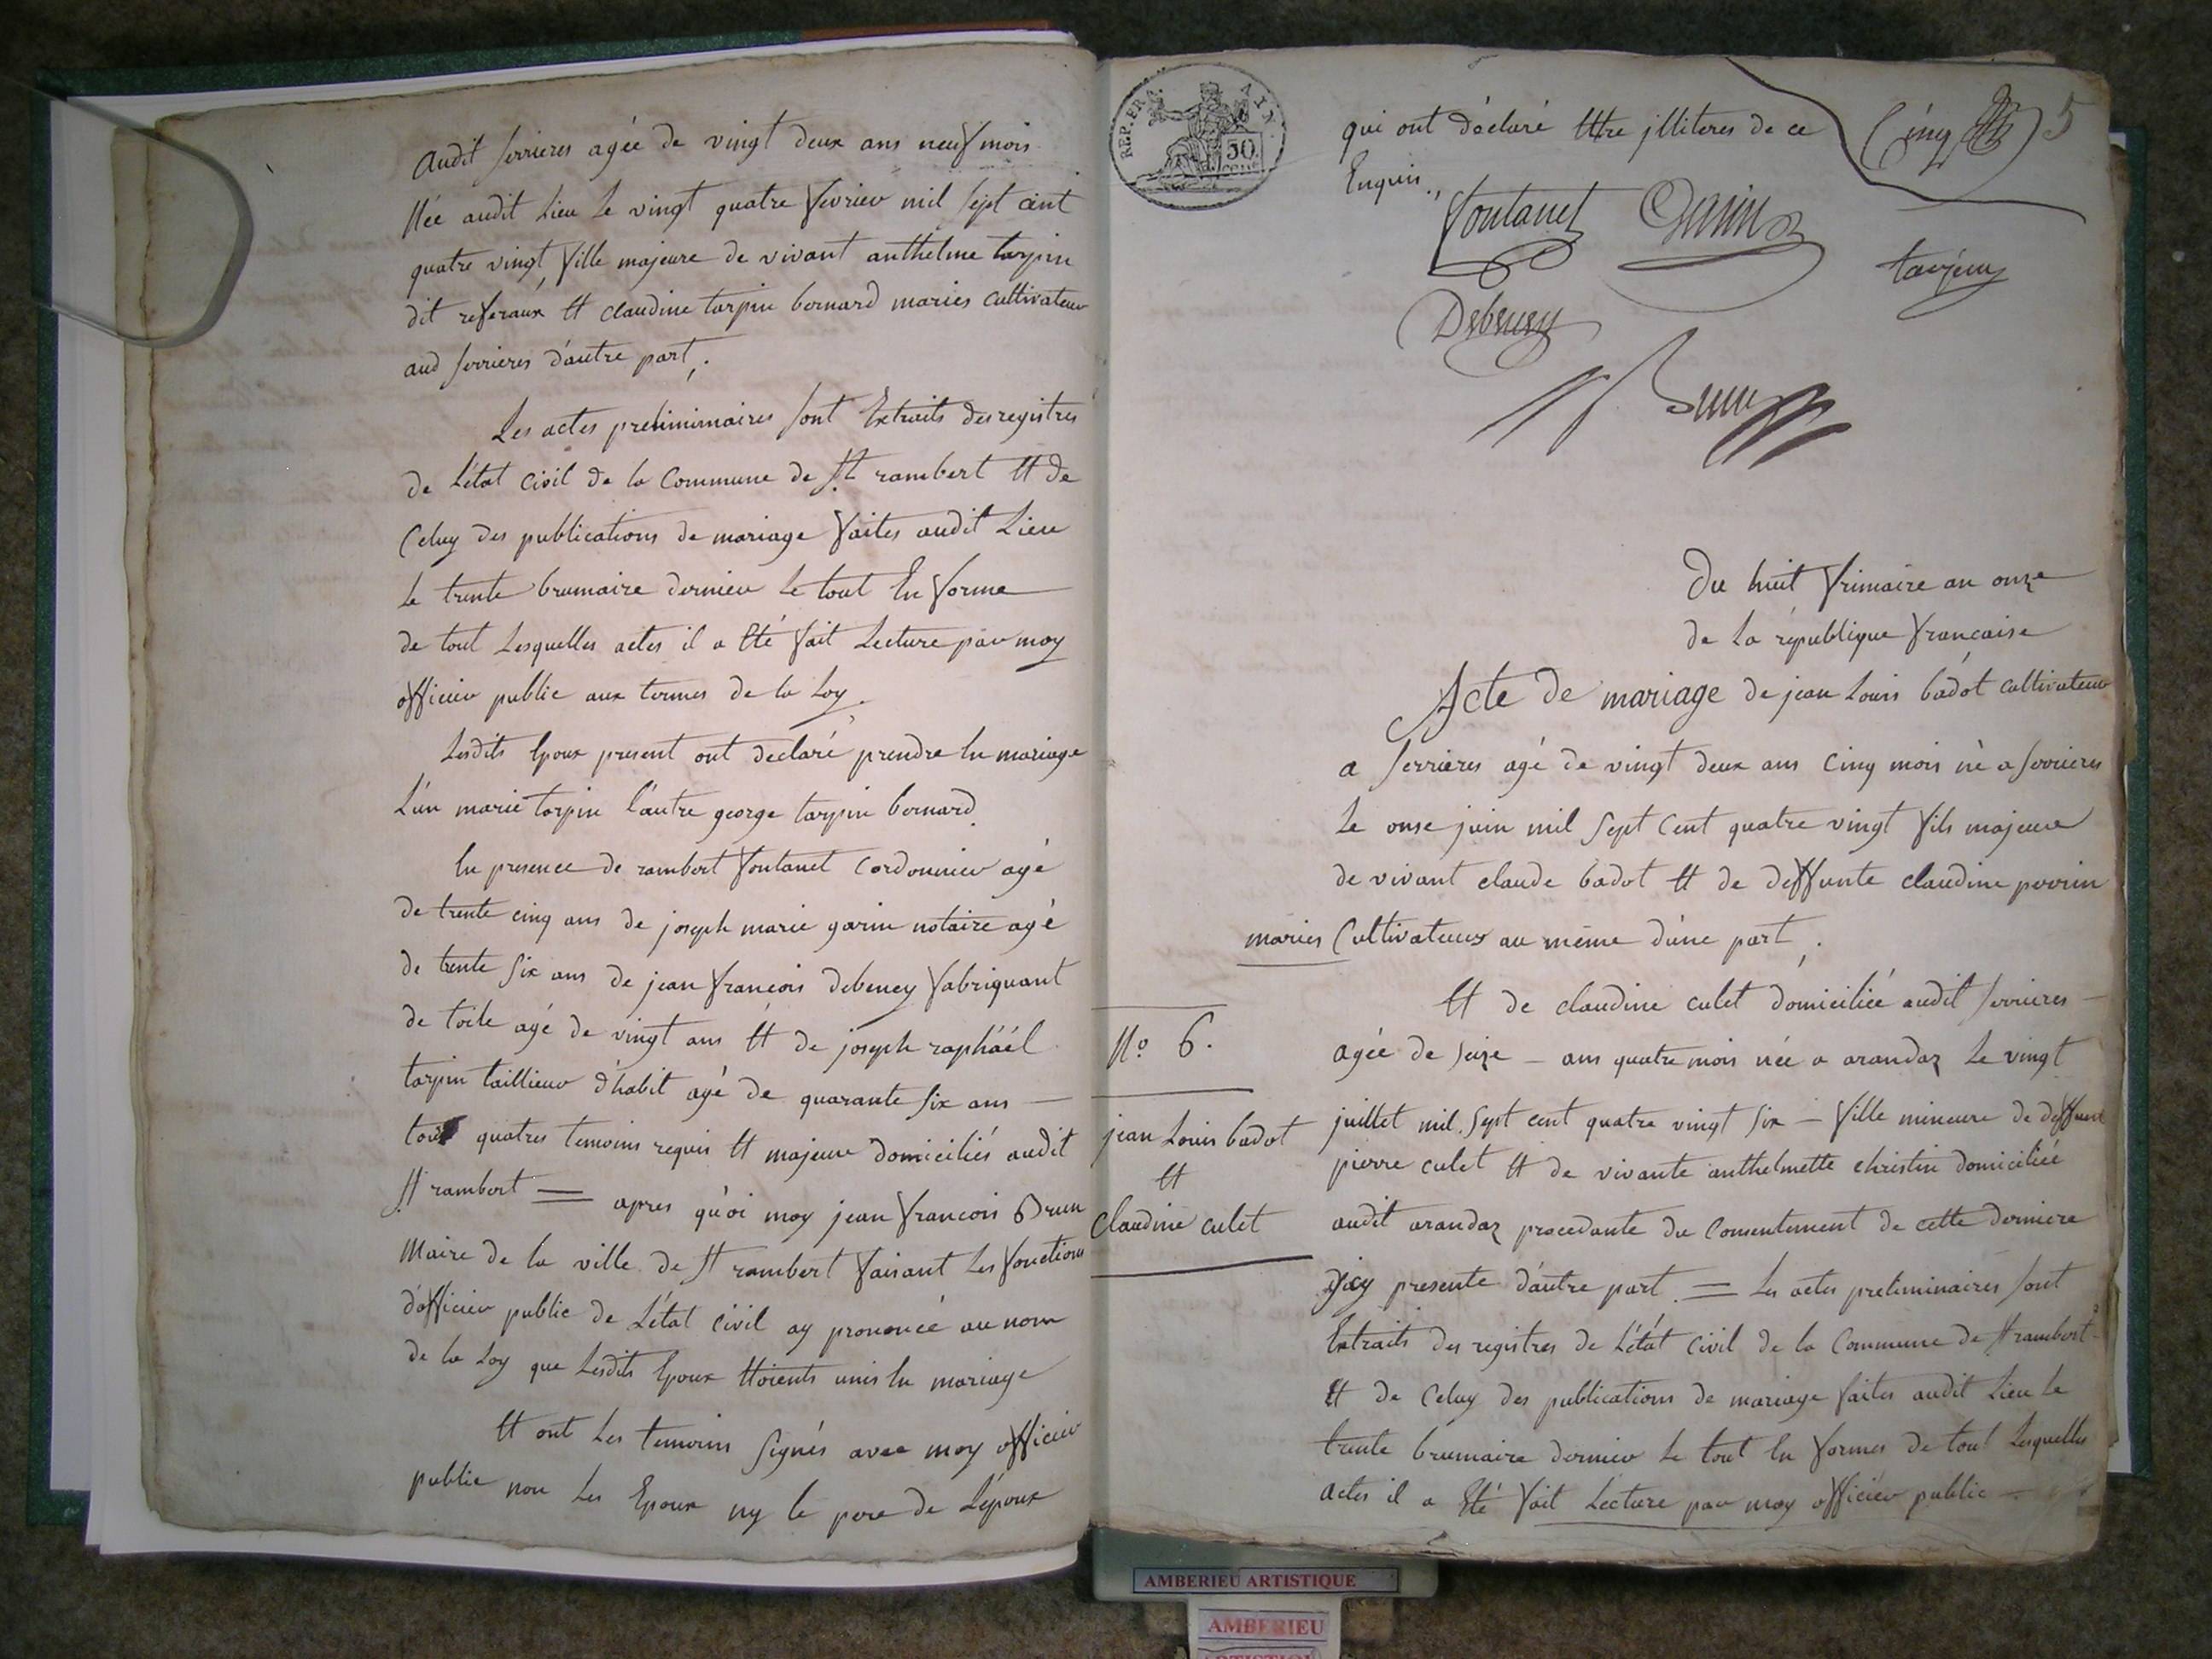 audit serrieres agée de vingt deux ans neuf mois
Née audit Lieu Le vingt quatre fevrier mil sept cent
quatre vingt fille majeure de vivant anthelme tarpin
dit referaux et claudine tarpin bernard mariés cultivateur
aud serrieres d'autre part.
Les actes preliminaires sont Extraits des registres
de L'état civil de la Commune de St rambert et de
Celuy des publications de mariage faites audit Lieu
le trente brumaire dernier Le tout En forme
de tout Lesquelles actes il a Eté fait Lecture par moy
officier public aux termes de la Loy.
Lesdits Epoux present ont declaré prendre En mariage
L'un marie tarpin l'autre george tarpin bernard
En presence de rambert fontanet Cordonnier agé
de trente cinq ans de joseph marie garin notaire agé
de trente six ans de jean francois debeney fabriquant
de toile agé de vingt ans Et de joseph raphäél
tarpin taillieur d'habit agé de quarante six ans —
tous quatres temoins requis Et majeur domiciliés audit
St rambert = apres qu'oi moy jean francois Brun
Maire de la ville de St rambert faisant Les fonctions
d'officier public de L'état Civil ay prononcé au nom
de la Loy que Lesdits Epoux Etoients unis En mariage
Et ont Les temoins signés avec moy officier
public non Les Epoux ny le pere de L'epoux
REP. FRA.
50.
CENT
qui ont déclaré Etre jlliteres de ce
Enquis.,
Cinq
5
fontanet
Garin
tarpin
Debeney
Brun
Du huit frimaire an onze
de La république francaise
Acte de mariage de jean Louis badot cultivateur
a serrieres agé de vingt deux ans Cinq mois né a serrieres
Le onse juin mil sept Cent quatre vingt fils majeur
de vivant claude badot Et de deffunte claudine perrin
mariés Cultivateurs au même d'une part,
Et de claudine culet domiciliée audit serrieres —
agée de seize — ans quatre mois née a arandaz Le vingt
juillet mil sept cent quatre vingt six — fille mineure de deffunt
pierre culet Et de vivante anthelmette christin domiciliée
audit arandaz procedante du Consentement de cette derniere
jcy presente d'autre part = Les actes preliminaires sont
Extraits des registres de L'état Civil de la Commune de St rambert
Et de Celuy des publications de mariage faites audit Lieu Le
trente brumaire dernier Le tout En formes de tout Lesquelles
actes il a Eté fait Lecture par moy officier public —
No 6.
jean Louis badot
Et
Claudine culet
AMBERIEU ARTISTIQUE
AMBERIEU
ARTISTIQUE